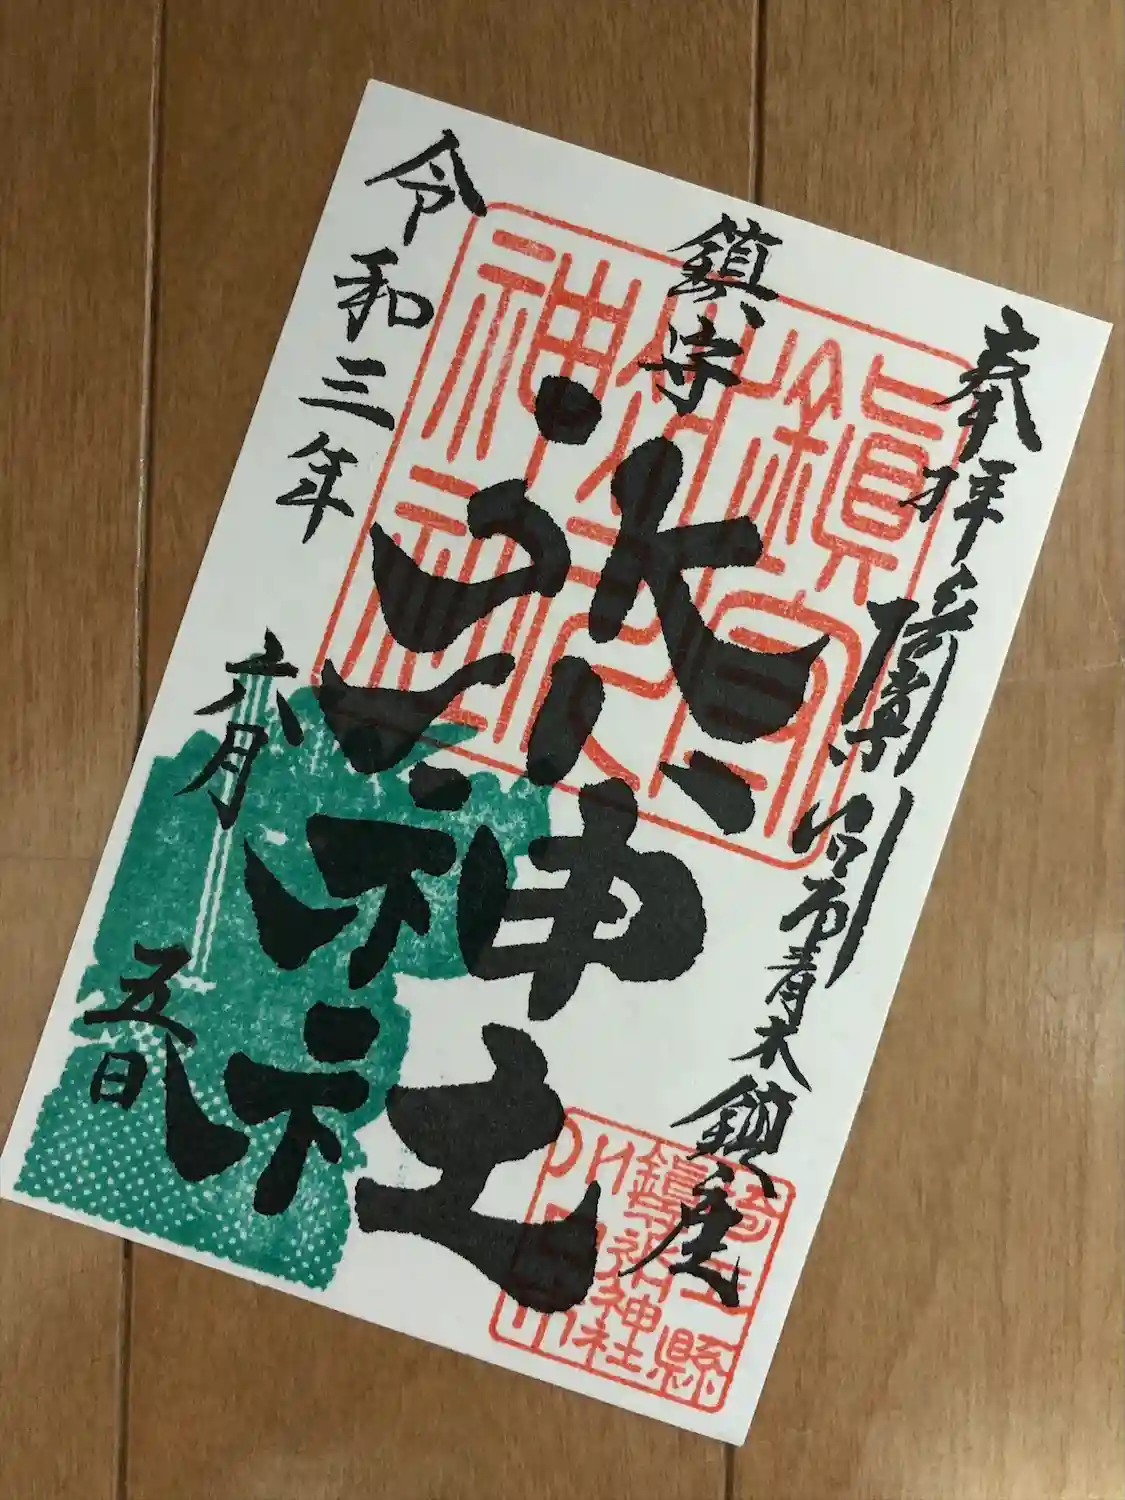 奉拝
川口市青木鎮座
鎮守
氷川神社
令和三年
六月
五日
鎮守
氷川
神社
埼玉縣
鎮守氷川神社
川口